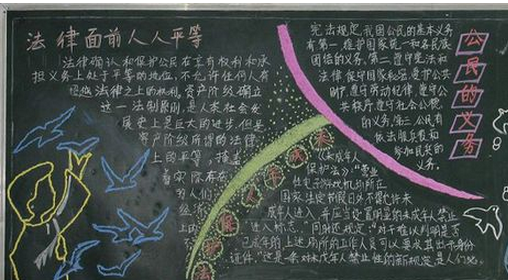 法律面前人人平等
法律确认和保护公民在享有权利和承
担义务上处于平等的地位，不允许任何人有
超越法律之上的权利，资产阶级确立
这一法制原则，是人类社会发
展史上是巨大的进步，但是
资产阶级所谓的法律
上的平等，掩盖
着实际存在
的人们
宪法规定，我国公民的基本义务
有第一，维护国家统一和各民族
团结的义务。第二，遵守宪法和
法律，保守国家秘密，爱护公共
财产，遵守劳动纪律，遵守公
共秩序，遵守社会公德
的义务，第三，公民有
依法服兵役和
参加民兵的
义务。
公民的义务
《未成年人
保护法》："营业
性电子游戏机场所在
国家法定节假日外不得允许未
成年人进入，并应当设置明显的未成年人禁止
进入标志，同时还规定："对于难以判明是否
已成年的，上述场所的工作人员可以要求其出示身份
证件。"这是一条对未成年人禁止性的新规定，是人们